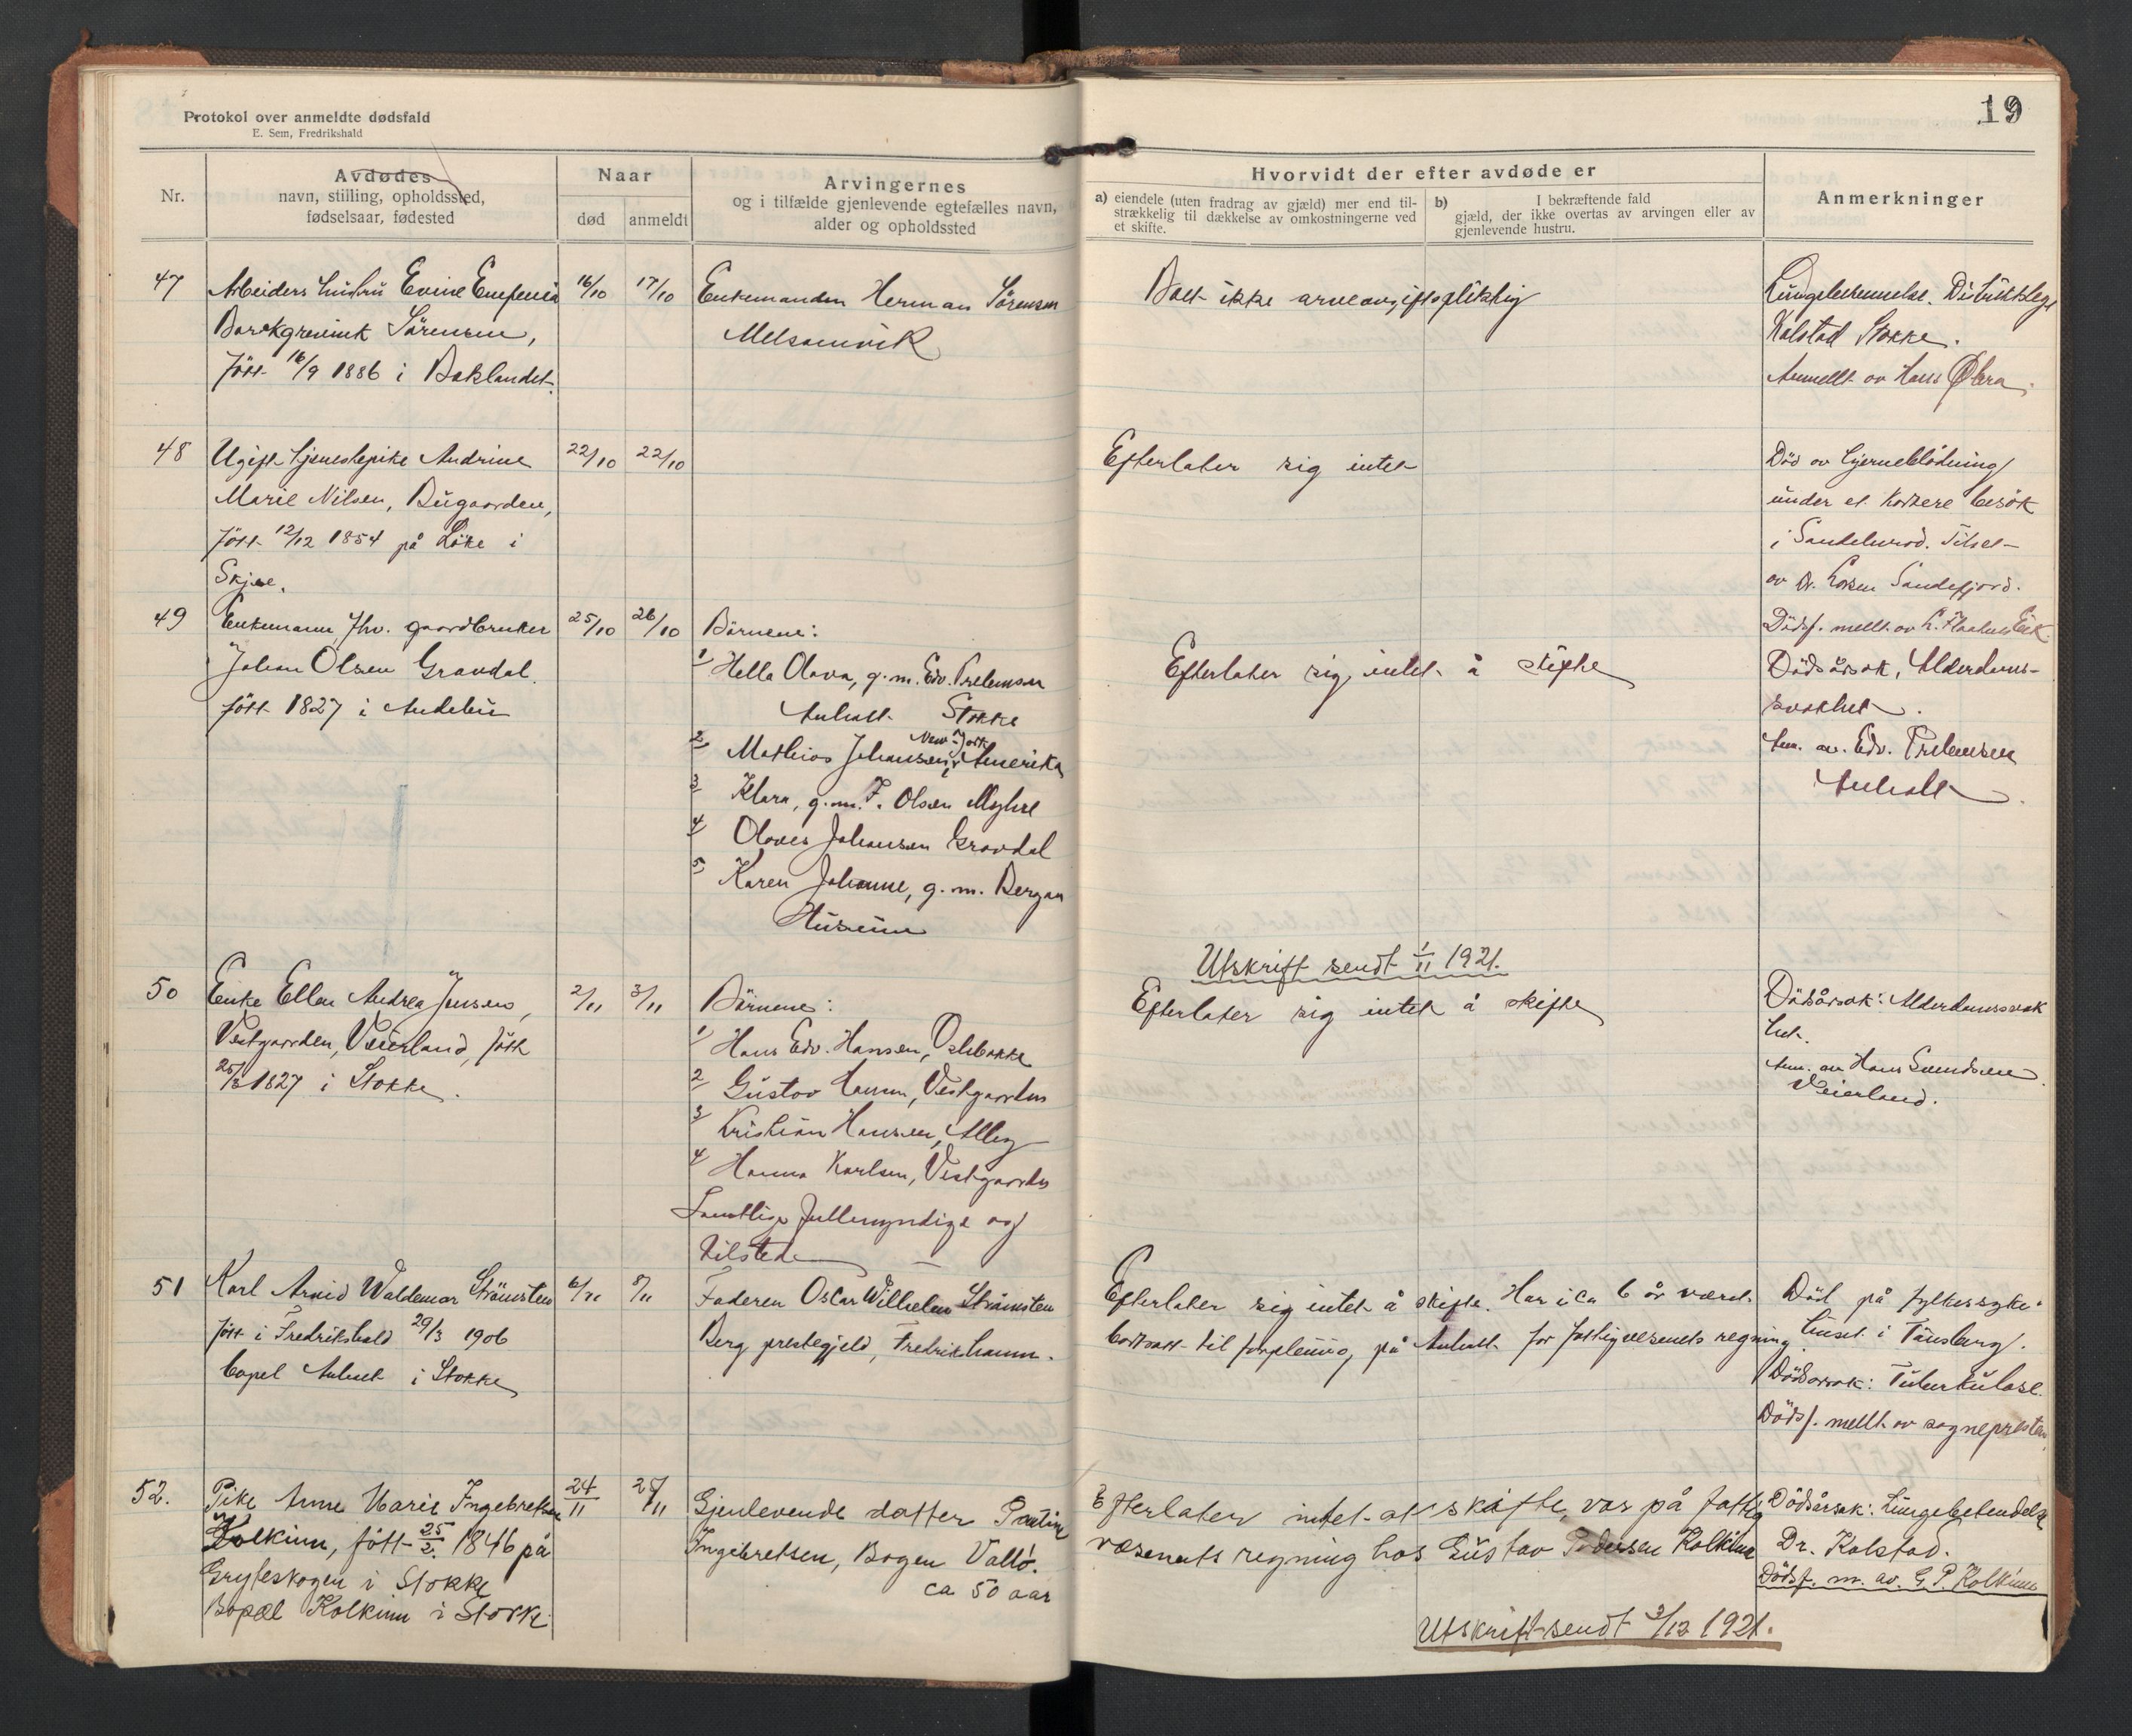 19
Protokol over anmeldte dødsfald
E. Sem, Fredrikshald
Nr.
Avdødes
navn, stilling, opholdssted,
fødselsaar, fødested
Naar
død
anmeldt
Arvingernes
og i tilfælde gjenlevende egtefælles navn,
alder og opholdssted
Hvorvidt der efter avdøde er
a) eiendele (uten fradrag av gjæld) mer end til-
strækkelig til dækkelse av omkostningerne ved
et skifte.
b) I bekræftende fald
gjæld, der ikke overtas av arvingen eller av
gjenlevende hustru.
Anmerkninger
47
Arbeiders hustru Evine
Sørensen,
født 16/9 1886 i Baklandet.
16/10
17/10
Enkemanden Herman Sørensen
Melsomvik
Boet ikke arveavgiftspliktig
Lungebetennelse. Distriktslege
Kolstad Stokke.
Anmeldt av Hans
48
Ugift tjenestepike Andrine
Marie Nilsen, Bugaarden,
født 12/12 1854 på Løke i
Skjee.
22/10
22/10
Efterlater sig intet
Död av hjerneblödning
under et kortere besök
i Sandeherred. Tilset
av Dr. Sandefjord.
Dödsf. mellt av
49
Enkemann, fhv. gaardbruker
Johan Olsen Gravdal.
født 1827 i Andebu
25/10
26/10
Börnene:
1/ Hella Olava, g.m. Edv.
Anholt Stokke
2/ Mathias Johansen, i New-York Amerika
3/ Klara, g.m. F. Olsen Myhre
4/ Olaves Johansen Gravdal
5/ Karen Johanne, g.m. Bergan
Husum
Efterlater sig intet å skifte
Dödsårsak, Alderdoms-
svakhet.
Anm. av. Edv.
Anholt.
Utskrift sendt 1/11 1921.
50
Enke Ellen Andrea Jensen,
Vestgaarden, Veierland, født
25/3 1827 i Stokke.
2/11
3/11
Börnene:
1/ Hans Edv. Hansen,
2/ Gustav Hansen, Vestgaarden
3/ Kristian Hansen,
4/ Hanna Karlsen, Vestgaarden
Samtlige fullmyndige og
tilstede
Efterlater sig intet å skifte
Dödsårsak: Alderdomssvak
het.
Anm. av Hans Svendsen
Veierland.
51
Karl Arvid Waldemar Strömsten
født i Fredrikshald 29/3 1906
bopel Anholt i Stokke
6/11
8/11
Faderen Oscar Wilhelm Strømsten
Berg prestegjeld, Fredrikshavn.
Efterlater sig intet å skifte. Har i ca 6 år været
bortsatt til forpleining på Anholt for fattigvesenets regning
Död på fylkessyke-
huset i Tönsberg.
Dödsårsak: Tuberkulose.
Dödsf. mellt av sogneprsten
52.
Pike Anne Marie Ingebretsen
Kolkinn, født 25/2 1846 på
Gryteskogen i Stokke
Bopæl Kolkinn i Stokke.
24/11
25/11
Gjenlevende datter
Ingebretsen, Bogen Vallö.
ca 50 aar
Efterlater intet at skifte, var på fattig
væsenets regning hos Gustav Pedersen Kolkinn
Dödsårsak: Lungebetendelse
Dr. Kolstad.
Dödsf. m. av. G. P. Kolkinn
Utskrift sendt 3/12 1921.